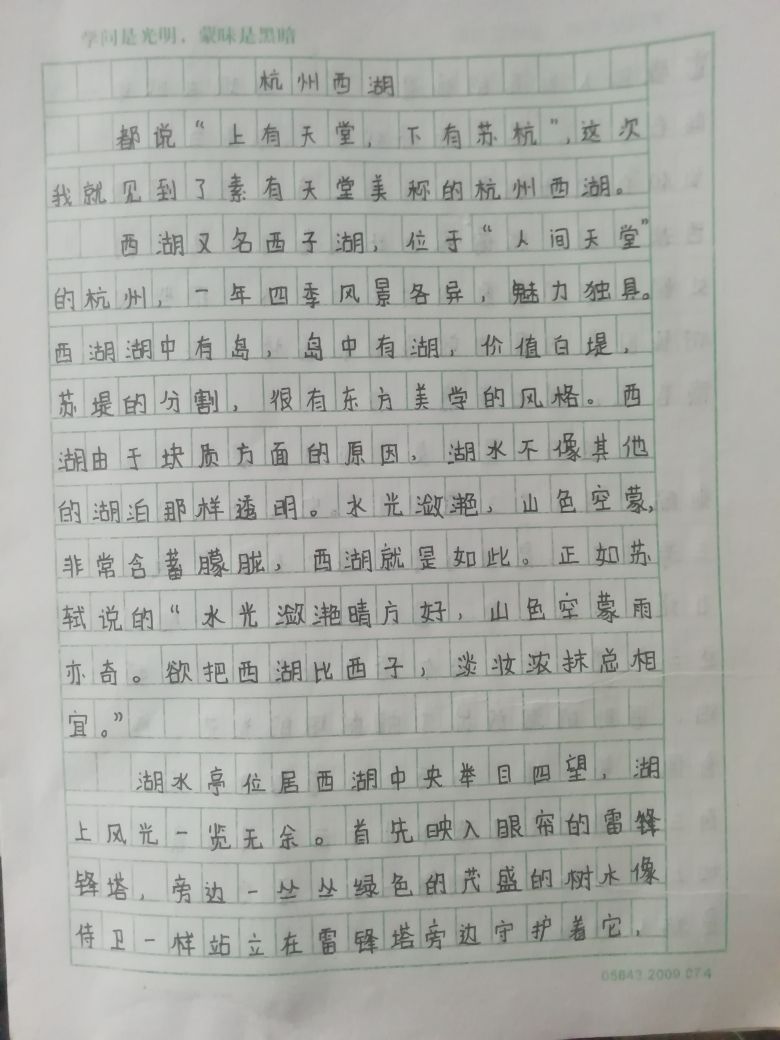 学问是光明，蒙昧是黑暗
杭州西湖
都说“上有天堂，下有苏杭”，这次
我就见到了素有天堂美称的杭州西湖。
西湖又名西子湖，位于“人间天堂”
的杭州，一年四季风景各异，魅力独具。
西湖湖中有岛，岛中有湖，价值白堤，
苏堤的分割，很有东方美学的风格。西
湖由于块质方面的原因，湖水不像其他
的湖泊那样透明。水光潋滟，山色空蒙，
非常含蓄朦胧，西湖就是如此。正如苏
轼说的“水光潋滟晴方好，山色空蒙雨
亦奇。欲把西湖比西子，淡妆浓抹总相
宜。”
湖水亭位居西湖中央举目四望，湖
上风光一览无余。首先映入眼帘的雷锋
锋塔，旁边一丛丛绿色的茂盛的树木像
侍卫一样站立在雷锋塔旁边守护着它，
05643.2009.07.4